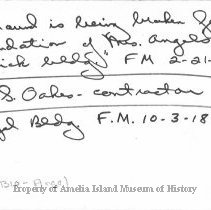 and is being broken for
dation of "Mrs. Angel's
ick bldg." FM 2-21-
S. Oakes - contractor
gel Bldg. F.M. 10-3-18
Property of Amelia Island Museum of History